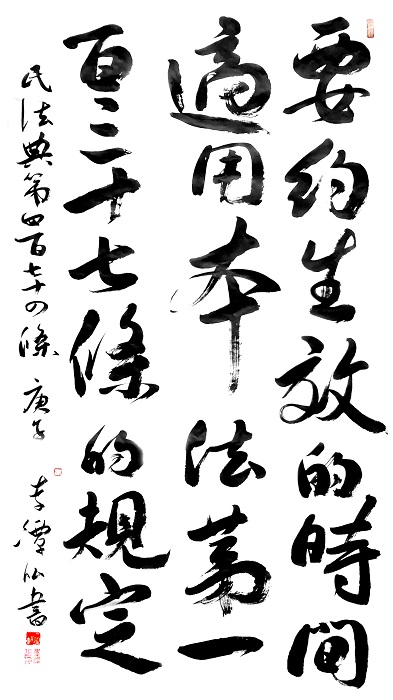 要約生效的時間
適用本法第一
百三十七條的規定
民法典第四百七十四條 庚子 李潭仙書